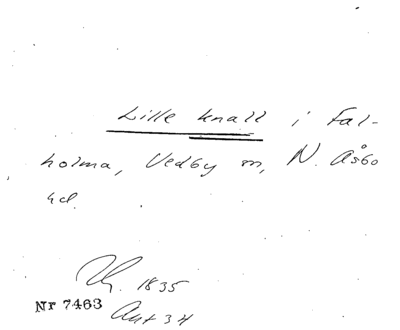 Lille knall i Fal-
holma, Vedby sn, N. Åsbo
hd.
1835
Nr 7463
Akt 34